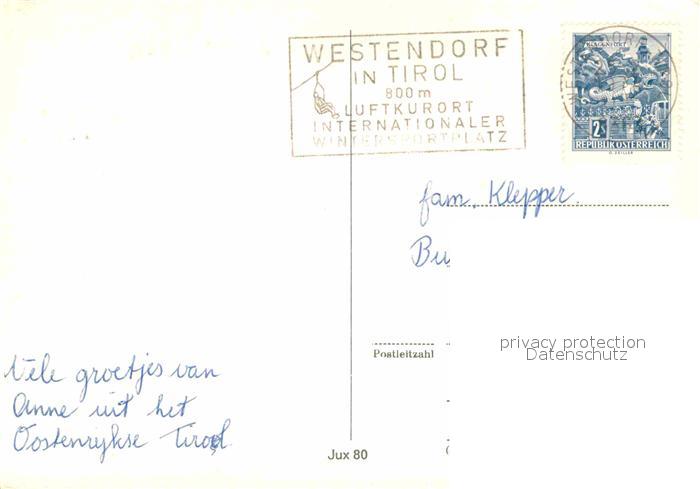 WESTENDORF
IN TIROL
800 m
LUFTKURORT
INTERNATIONALER
WINTERSPORTPLATZ
WESTENDORF
KLAGENFURT
2S
REPUBLIK ÖSTERREICH
fam. Klepper.
Bu
Postleitzahl
privacy protection
Datenschutz
Vele groetjes van
Anne uit het
Oostenrijkse Tirol.
Jux 80